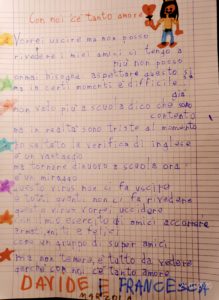 Con noi c'è tanto amore
Vorrei uscire ma non posso
rivedere i miei amici ci tengo a
più non posso
ormai bisogna aspettare questo si
ma in certi momenti è difficile
già
non vado più a scuola dico che sono
contento
ma in realtà sono triste al momento
ho saltato la verifica di inglese
è un vantaggio
ma tornare di nuovo a scuola ora
è un miraggio
questo virus non ci fa uscire
e tutti quanti non ci fa rivedere
quel virus vorrei uccidere
con il mio esercito di amici accorrere
armati, uniti e felici
come un gruppo di super amici
ma non temere, è tutto da vedere
perché con noi c'è tanto amore
DAVIDE E FRANCESCA